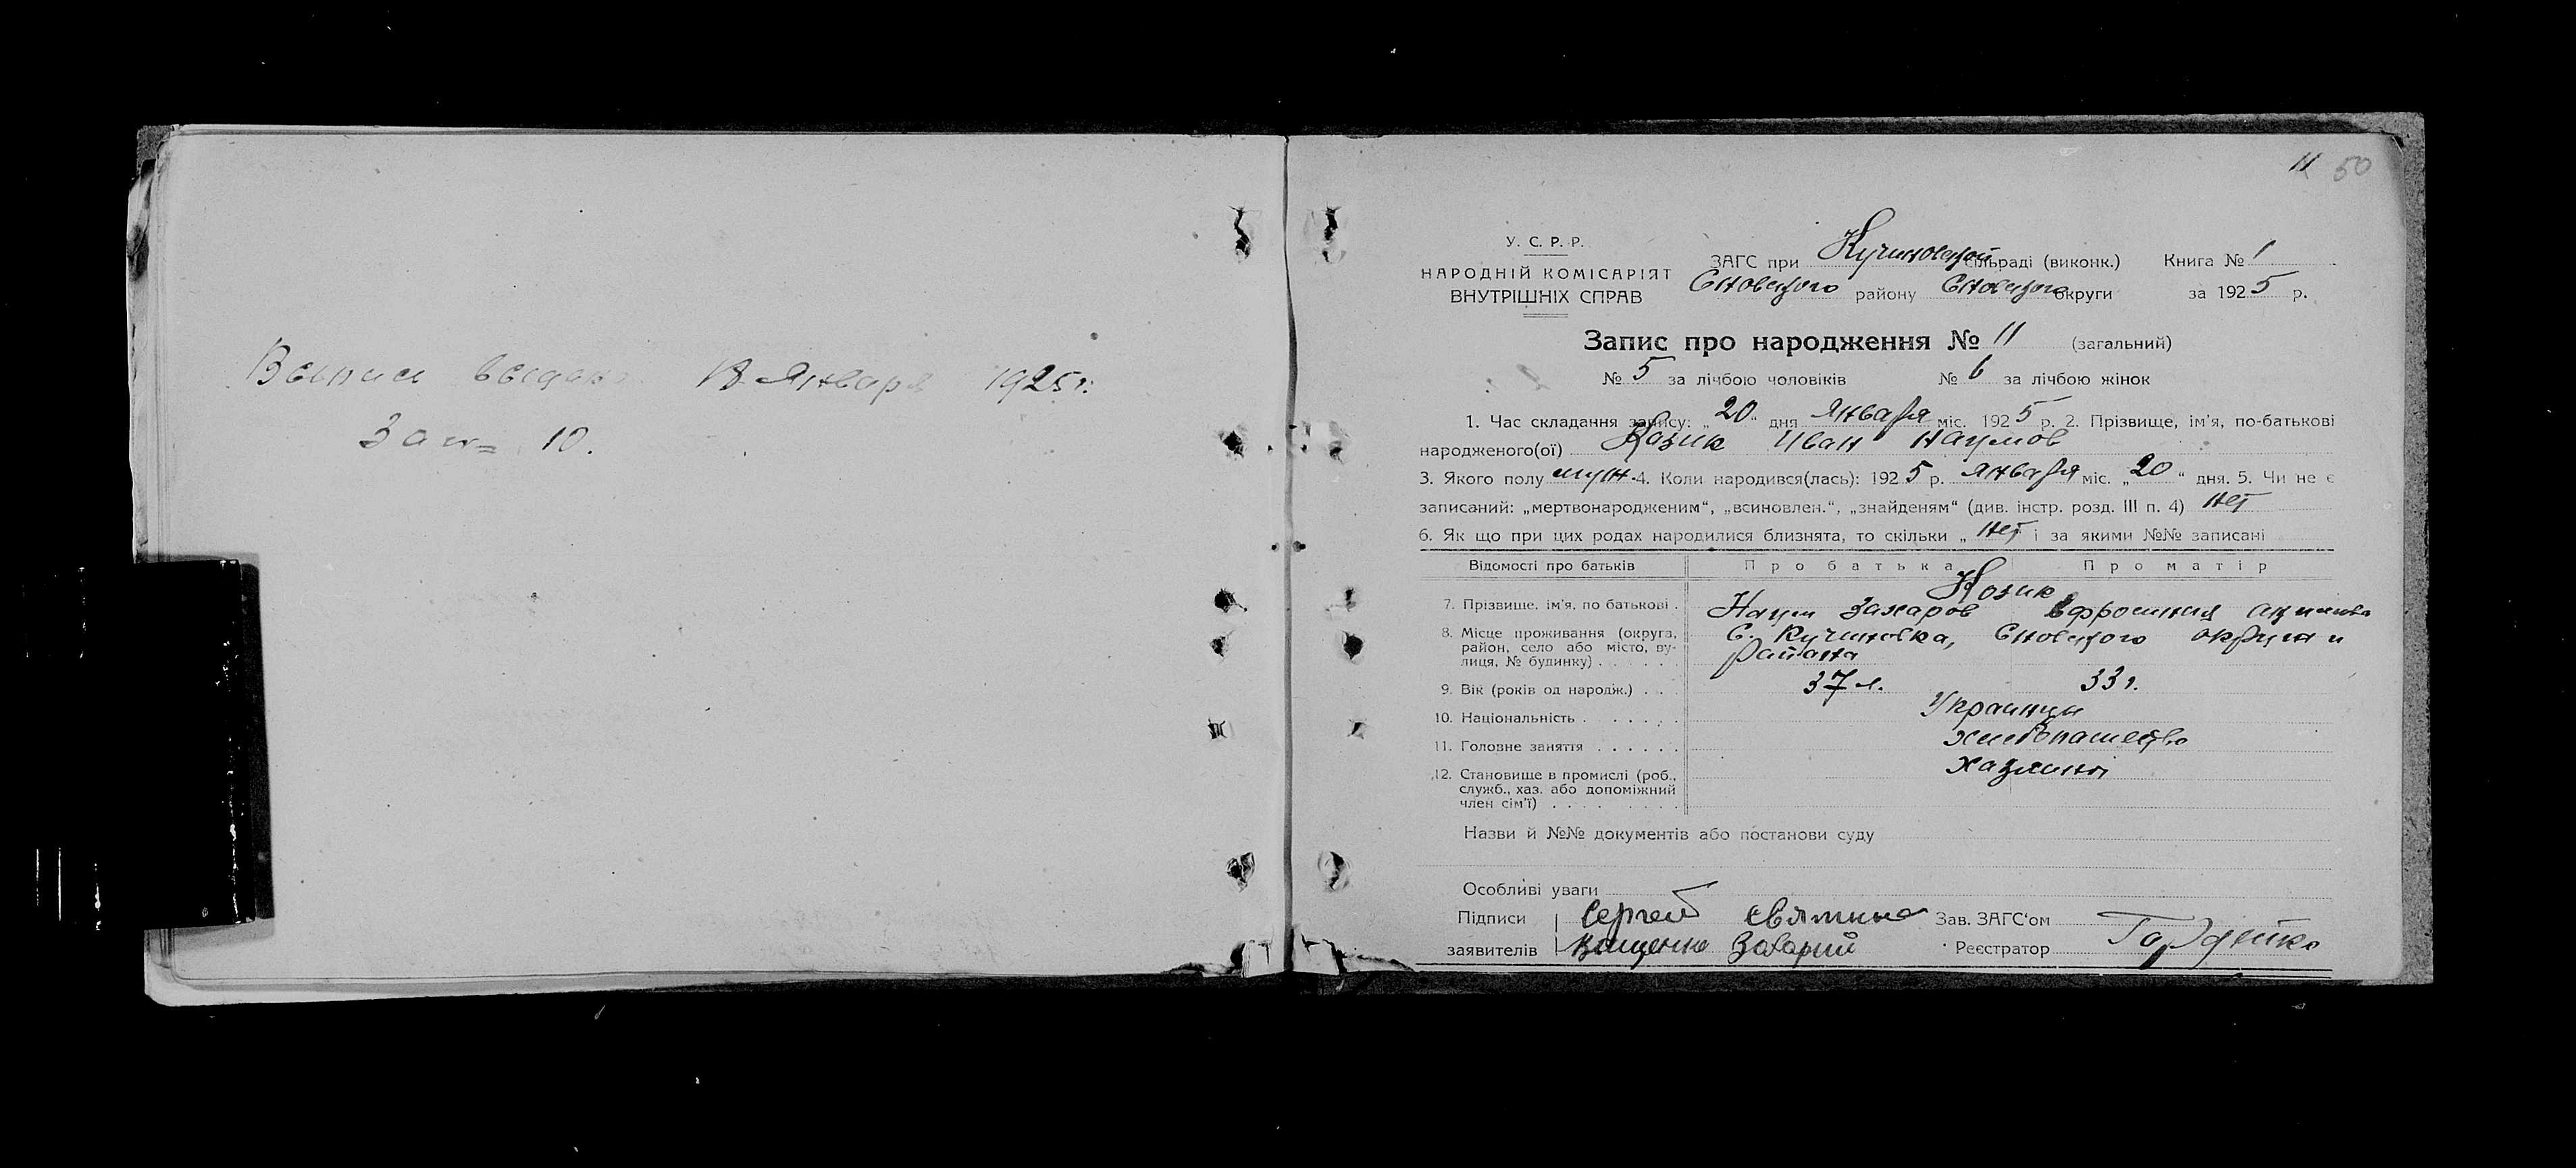 Выпись выдана 18 Января 1925 г.
За № 10.
11 50
У. С. Р. Р.
НАРОДНІЙ КОМІСАРІЯТ
ВНУТРІШНІХ СПРАВ
ЗАГС при Кучиновской сільраді (виконк.) Книга № 1
Сновского району Сновского округи за 1925 р.
Запис про народження № 11 (загальний)
№ 5 за лічбою чоловіків № 6 за лічбою жінок
1. Час складання запису: „20“ дня Января міс. 1925 р. 2. Прізвище, ім'я, по-батькові
народженого(ої) Козик Иван Наумов
3. Якого полу муж. 4. Коли народився(лась): 1925 р. Января міс. „20“ дня. 5. Чи не є
записаний: „мертвонародженим“, „всиновлен.“, „знайденям“ (див. інстр. розд. III п. 4) нет
6. Як що при цих родах народилися близнята, то скільки „ нет і за якими №№ записані
Відомості про батьків Про батька Про матір
Козик
7. Прізвище, ім'я, по батькові . Наум Захаров Ефросиния
8. Місце проживання (округа, С. Кучиновка, Сновского округа и
район, село або місто, ву- района
лиця, № будинку) . . . . . .
9. Вік (років од народж.) . . . 37 л. 33 г.
10. Національність . . . . . . Украинцы
11. Головне заняття . . . . . . хлебопашество
12. Становище в промислі (роб.,
служб., хаз. або допоміжний
член сім'ї) . . . . . . . .
Назви й №№ документів або постанови суду
Особливі уваги
Підписи Сергей Зав. ЗАГС'ом
заявителів Ващенко Захарий Реєстратор